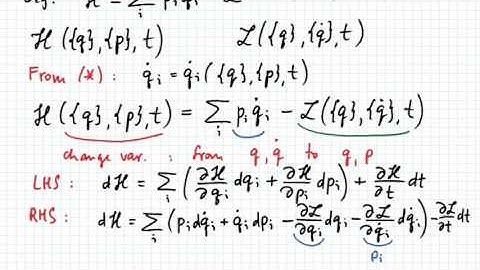 ℋ = Σ_i p_i q̇_i − ℒ
ℋ({q},{p},t)    ℒ({q},{q̇},t)
From (*): q̇_i = q̇_i({q},{p},t)
ℋ({q},{p},t) = Σ_i p_i q̇_i − ℒ({q},{q̇},t)
change var. : from q, q̇ to q, p
LHS: dℋ = Σ_i (∂ℋ/∂q_i dq_i + ∂ℋ/∂p_i dp_i) + ∂ℋ/∂t dt
RHS: dℋ = Σ_i (p_i dq̇_i + q̇_i dp_i − ∂ℒ/∂q_i dq_i − ∂ℒ/∂q̇_i dq̇_i) − ∂ℒ/∂t dt
p_i